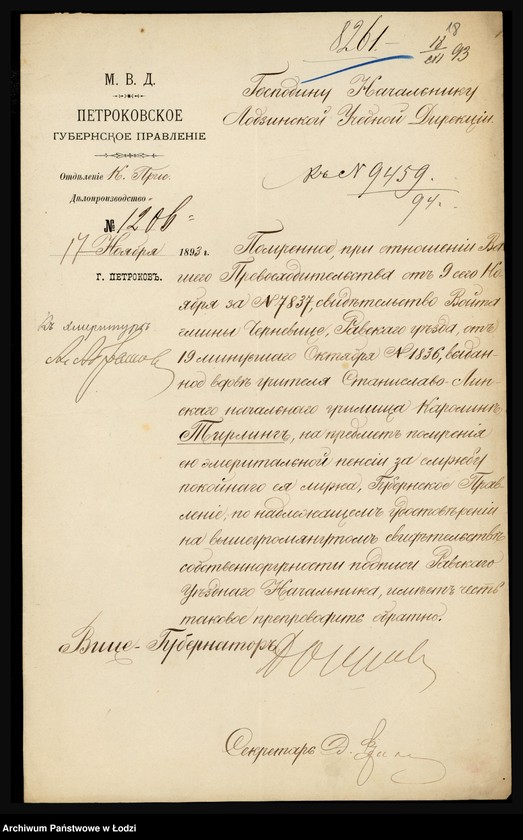 8261
18
18/XI 93
М. В. Д.
ПЕТРОКОВСКОЕ
ГУБЕРНСКОЕ ПРАВЛЕНІЕ
Отдѣленіе К. През.
Дѣлопроизводство
№ 1206
17 Ноября 1893 г.
Г. ПЕТРОКОВЪ.
Господину Начальнику
Лодзинской Учебной Дирекціи.
къ № 9459.
94.
Полученное, при отношеніи Ва-
шего Превосходительства отъ 9 сего Но-
ября за № 7837, свидѣтельство Войта
гмины Черневице, Равскаго уѣзда, отъ
19 минувшаго Октября № 1836, выдан-
ное вдовѣ учителя Станиславо-Лин-
скаго начальнаго училища Каролинѣ
Тирлингъ, на предметъ полученія
ею эмеритальной пенсіи за службу
покойнаго ея мужа, Губернское Прав-
леніе, по надлежащемъ удостовѣреніи
на вышеупомянутомъ свидѣтельствѣ
собственноручности подписи Равскаго
Уѣзднаго Начальника, имѣетъ честь
таковое препроводить обратно.
Вице-Губернаторъ
Секретарь
Archiwum Państwowe w Łodzi